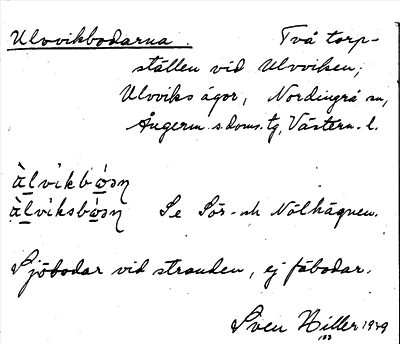 Ulvvikbodarna. Två torp-
ställen vid Ulvviken;
Ulvviks ägor, Nordingrå sn,
Ångerm. s. doms. tg, Västern. l.
Se Sör- och Nölhägnen.
Sjöbodar vid stranden, ej fäbodar.
Sven Hiller 1929